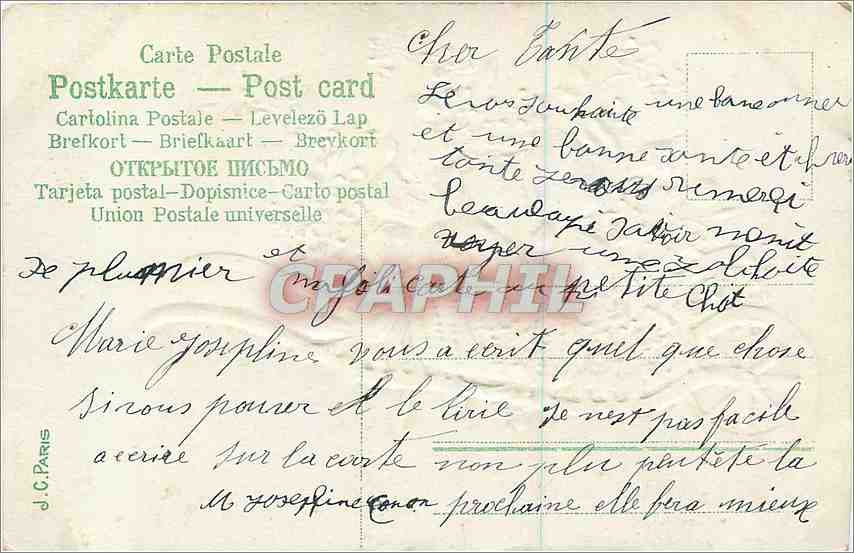 Carte Postale
Postkarte — Post card
Cartolina Postale — Levelező Lap
Brefkort — Briefkaart — Brevkort
ОТКРЫТОЕ ПИСЬМО
Tarjeta postal — Dopisnice — Carto postal
Union Postale universelle
Cher Tante
Je vos souhaite une bane anner
et une bonne sante et cher
tante je vous rimerci
beaucoupé
une boite
de plumier et un joli carte un petite Chat
CPAPHIL
Marie Josephine vous a ecrit quel que chose
si vous pouver et le lirie se n'est pas facile
a ecrire sur la carte non plu peutêtê la
M Josephine prochaine elle fera mieux
J.C. PARIS